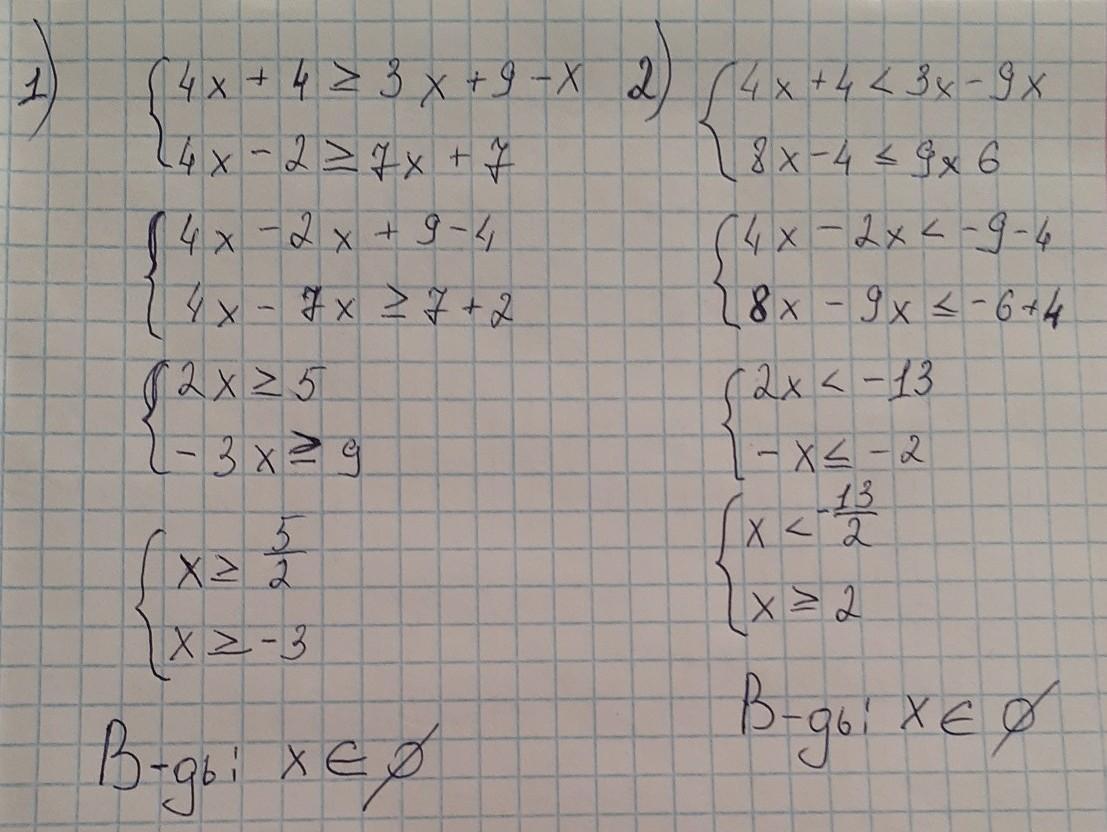 1)
4x + 4 ≥ 3x + 9 - x
4x - 2 ≥ 7x + 7
4x - 2x + 9 - 4
4x - 7x ≥ 7 + 2
2x ≥ 5
- 3x ≥ 9
x ≥ 5/2
x ≥ -3
В-дь: x ∈ ∅
2)
4x + 4 < 3x - 9x
8x - 4 ≤ 9x 6
4x - 2x < -9 - 4
8x - 9x ≤ -6 + 4
2x < -13
- x ≤ -2
x < -13/2
x ≥ 2
В-дь: x ∈ ∅